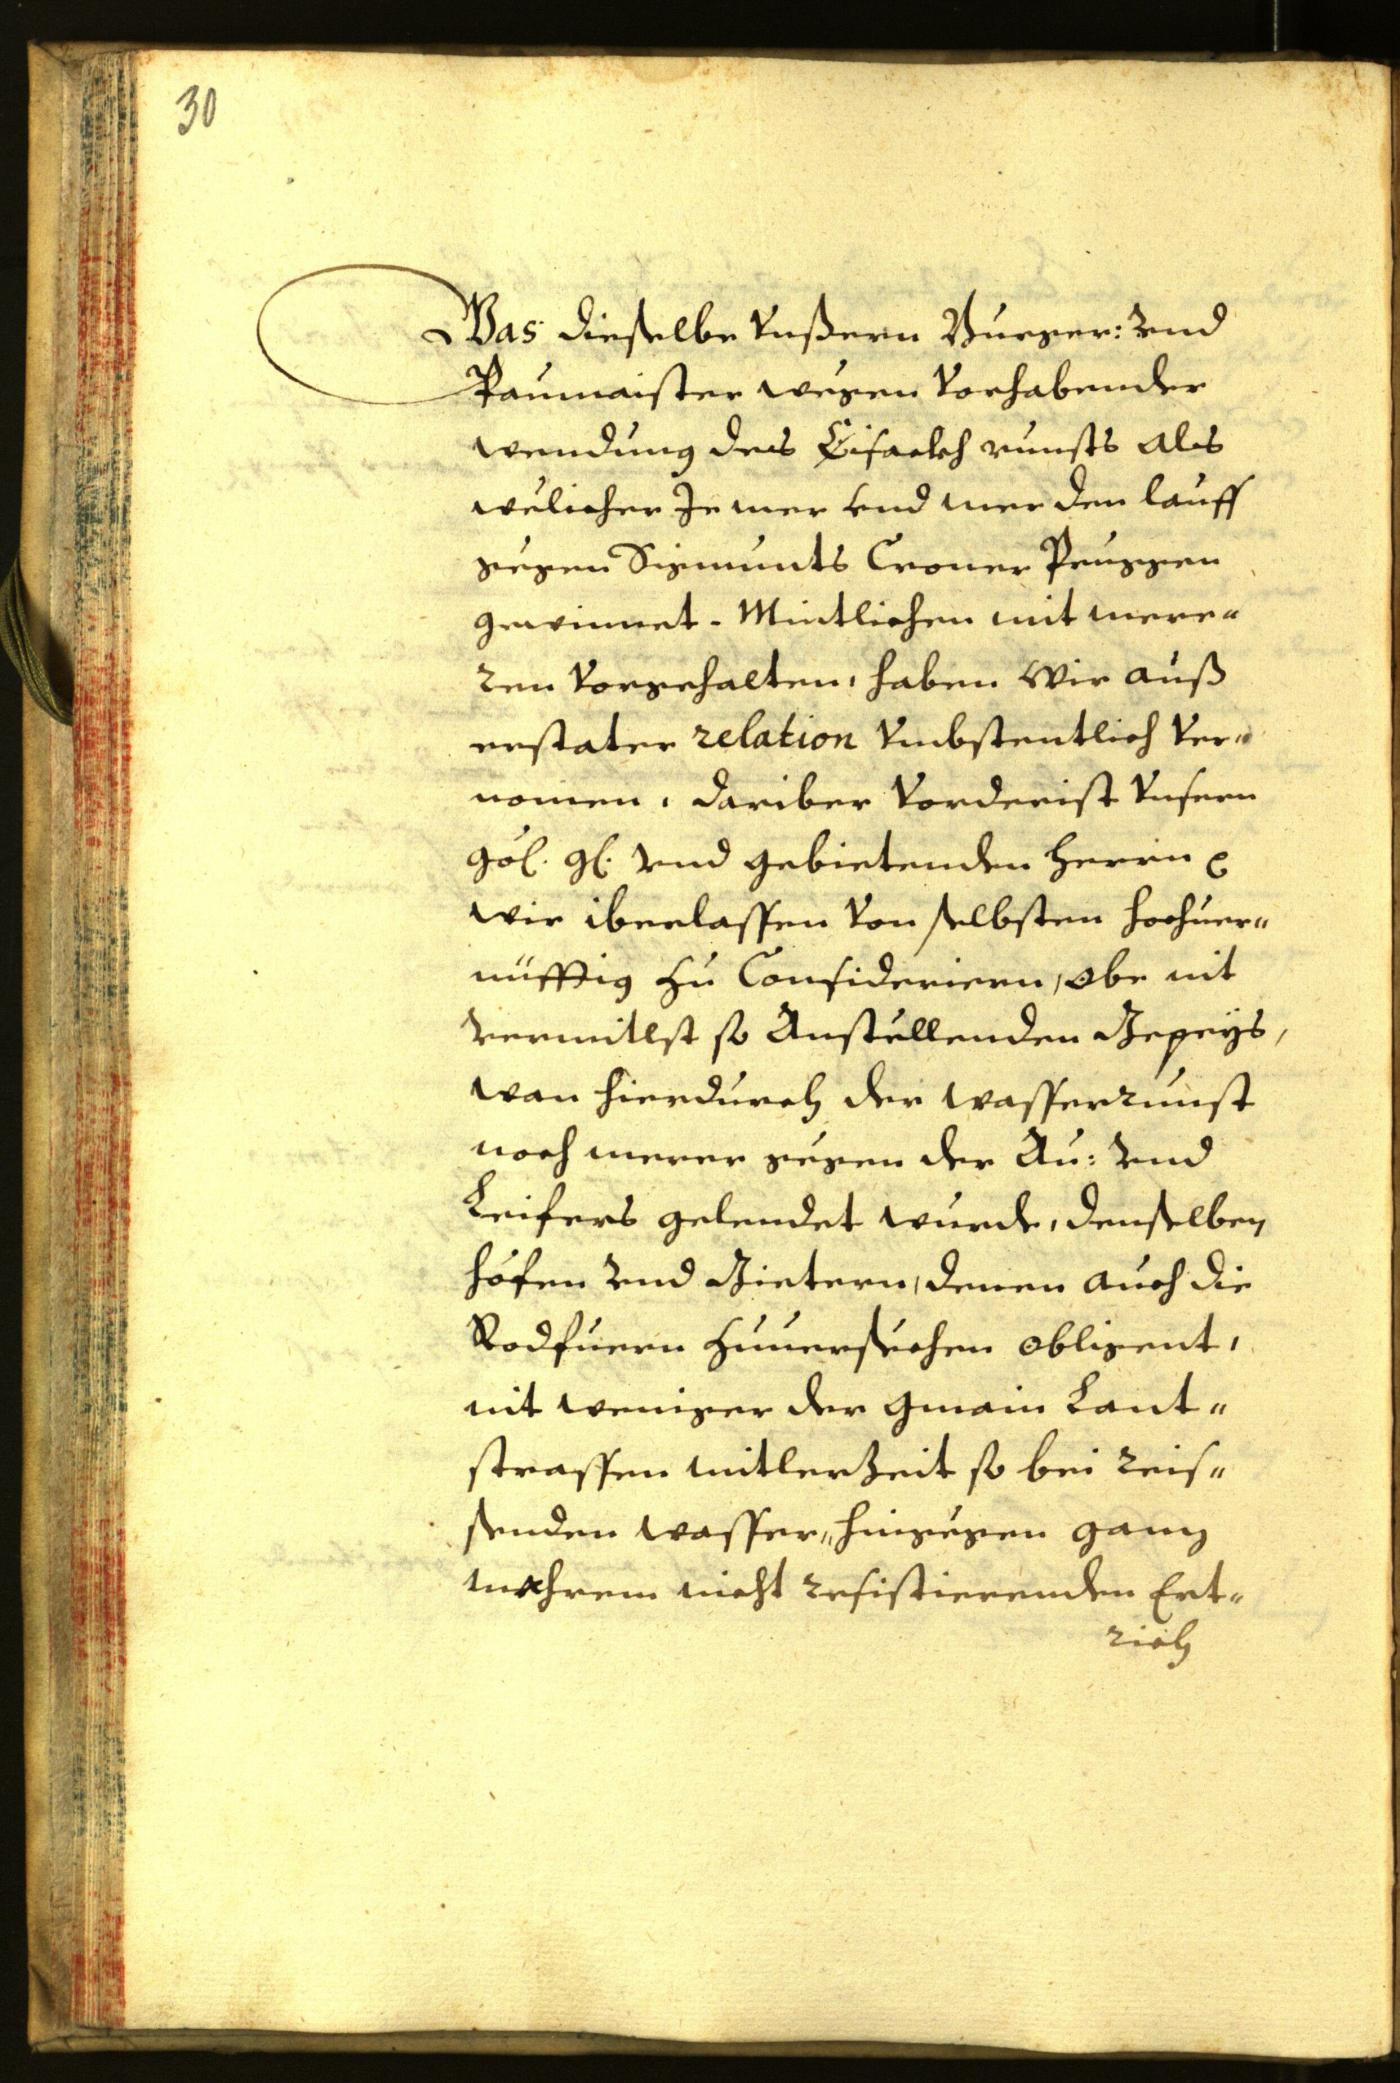 30
Was dieselbe Vnßern Burger: vnd
Paumaister wegen Vorhabender
wendung des Eisackh runsts als
welicher Je mer vnd mer den lauff
gegen Sigmunts Croner Pruggen
gewinnet. Mintlichen mit mere„
ren Vorgehalten, haben Wir auß
erstater relation Vmbstentlich Ver„
nomen, dariber Vorderist Vnsern
gdl. gl. vnd gebietenden herrn
wir iberlassen Von selbsten hochuer„
nüfftig zu Considerieren, obe nit
vermitlst so Anstellenden
wan hierdurch der wasserrunst
noch merer gegen der Au: vnd
Leifers gelendet wurde, denselben
höfen vnd Gietern, denen auch die
Rodfuern zuuersechen obligent,
nit weniger der gmain Lant„
strassen mitlerzeit so bei reis„
senden wasser„ hingegen ganz
nicht resistierenden Ert„
rich